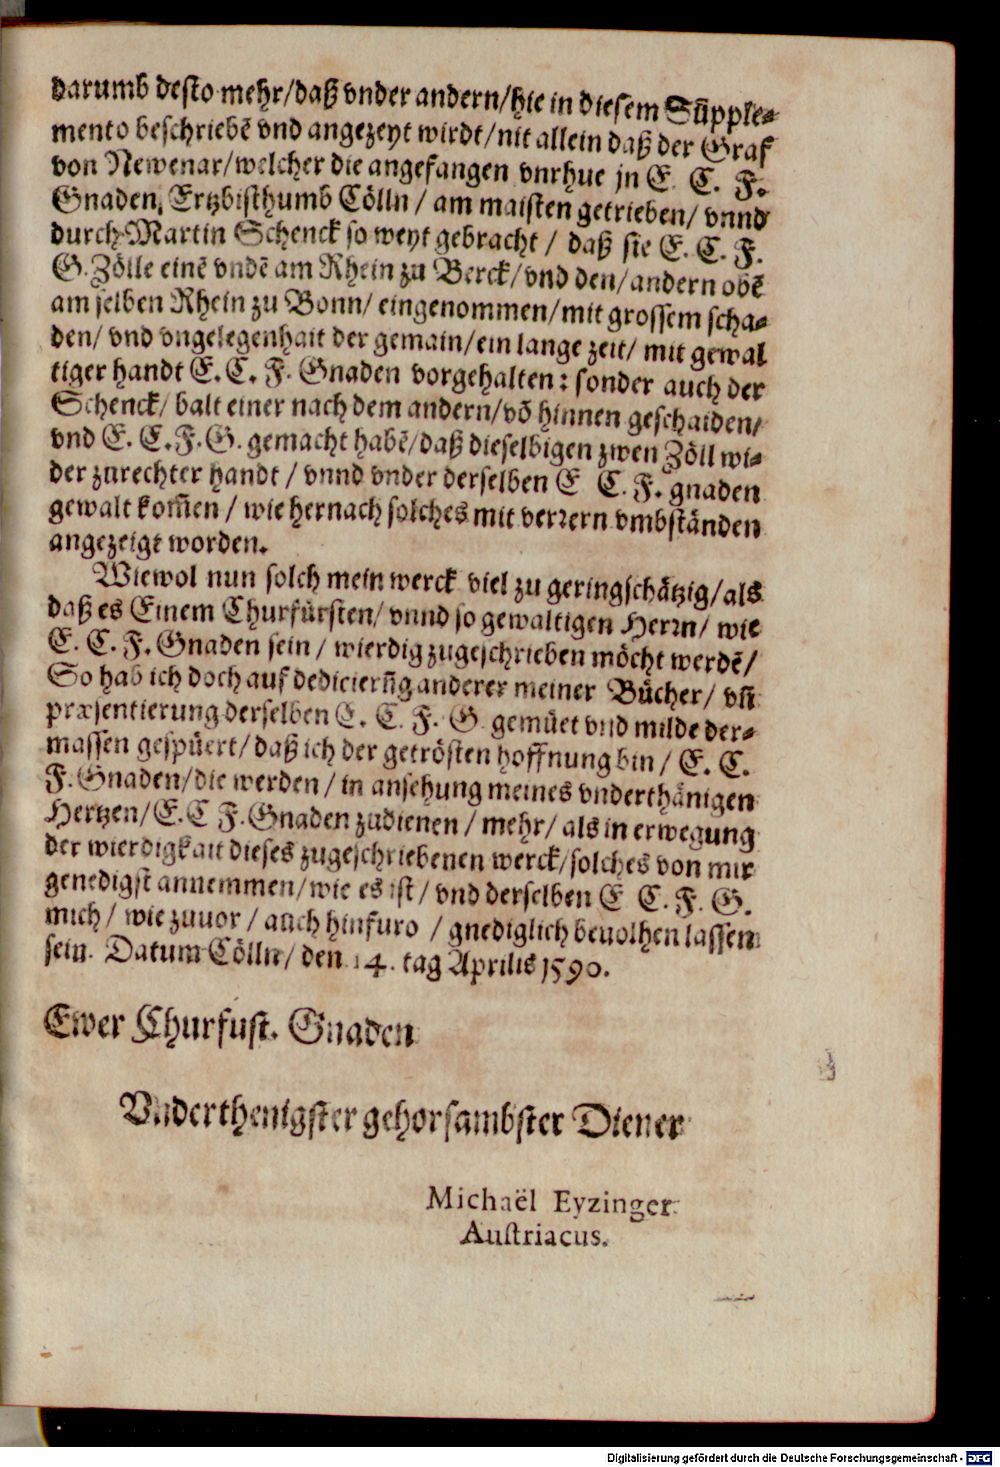 darumb desto mehr/daß vnder andern/hie in diesem Supple⸗
mento beschriebē vnd angezeyt wirdt/nit allein daß der Graf
von Newenar/welcher die angefangen vnrhue jn E. C. F.
Gnaden, Ertzbisthumb Cölln/ am maisten getrieben/ vnnd
durch Martin Schenck so weyt gebracht / daß sie E. C. F.
G. Zölle einē vndē am Rhein zu Berck/ vnd den/ andern obē
am selben Rhein zu Bonn/ eingenommen/mit grossem scha⸗
den/ vnd vngelegenhait der gemain/ein lange zeit/ mit gewal
tiger handt E. C. F. Gnaden vorgehalten: sonder auch der
Schenck/ balt einer nach dem andern/vō hinnen geschaiden/
vnd E. C. F. G. gemacht habē/daß dieselbigen zwen Zöll wi⸗
der zurechter handt / vnnd vnder derselben E C. F. gnaden
gewalt kom̄en / wie hernach solches mit verrern vmbständen
angezeigt worden.
Wiewol nun solch mein werck viel zu geringschätzig/als
daß es Einem Churfürsten/ vnnd so gewaltigen Herrn/ wie
E. C. F. Gnaden sein / wierdig zugeschrieben möcht werdē/
So hab ich doch auf dedicierūg anderer meiner Bücher/ vn̄
præsentierung derselben E. C. F. G. gemüet vnd milde der⸗
massen gespüert/ daß ich der getrösten hoffnung bin / E. C.
F. Gnaden/die werden / in ansehung meines vnderthänigen
Hertzen/E. C F. Gnaden zudienen / mehr/ als in erwegung
der wierdigkait dieses zugeschriebenen werck/solches von mir
genedigst annemmen/wie es ist / vnd derselben E C. F. G.
mich / wie zuuor / auch hinfuro / gnediglich beuolhen lassen
sein. Datum Cölln/ den 14. tag Aprilis 1590.
Ewer Churfust. Gnaden
Vnderthenigster gehorsambster Diener
Michaël Eyzinger
Austriacus.
Digitalisierung gefördert durch die Deutsche Forschungsgemeinschaft - DFG